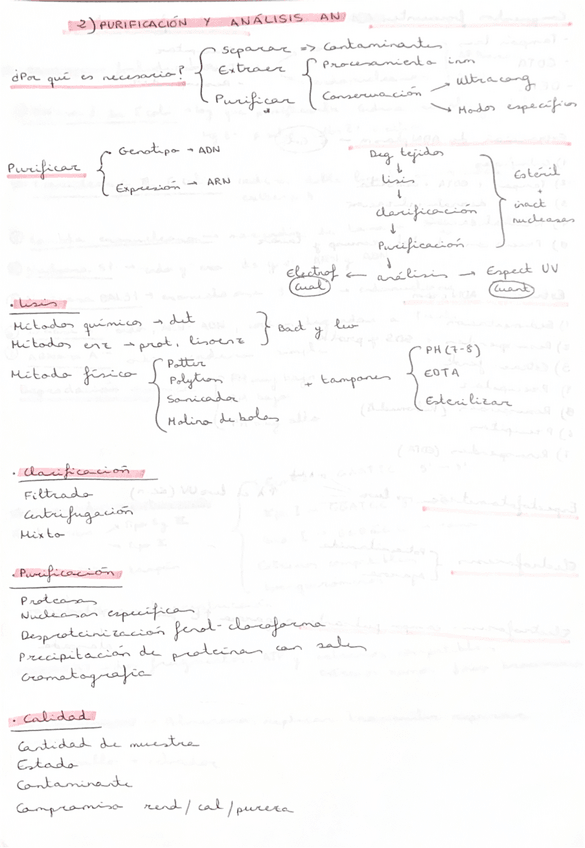 2) PURIFICACIÓN Y ANÁLISIS AN
¿Por qué es necesario?
Separar => Contaminantes
Extraer
Purificar
Procesamiento inm
Conservación → Ultracong
→ Modos específicos
Purificar
Genotipo → ADN
Expresión → ARN
Deg tejidos
↓
Lisis
↓
Clarificación
↓
Purificación
↓
Electrof ← análisis → Espect UV
(cual) (cuant)
Estéril
+
inact
nucleasas
· Lisis
Métodos químicos → det
Métodos enz → prot, lisoenz
Bact y lev
Método físico
Potter
Polytron
Sonicador
Molino de bolas
+ tampones
PH (7-8)
EDTA
Esterilizar
· Clarificación
Filtrado
Centrifugación
Mixto
· Purificación
Proteasas
Nucleasas específicas
Desproteinización fenol-cloroformo
Precipitación de proteínas con sales
Cromatografía
· Calidad
Cantidad de muestra
Estado
Contaminante
Compromiso rend/cal/pureza